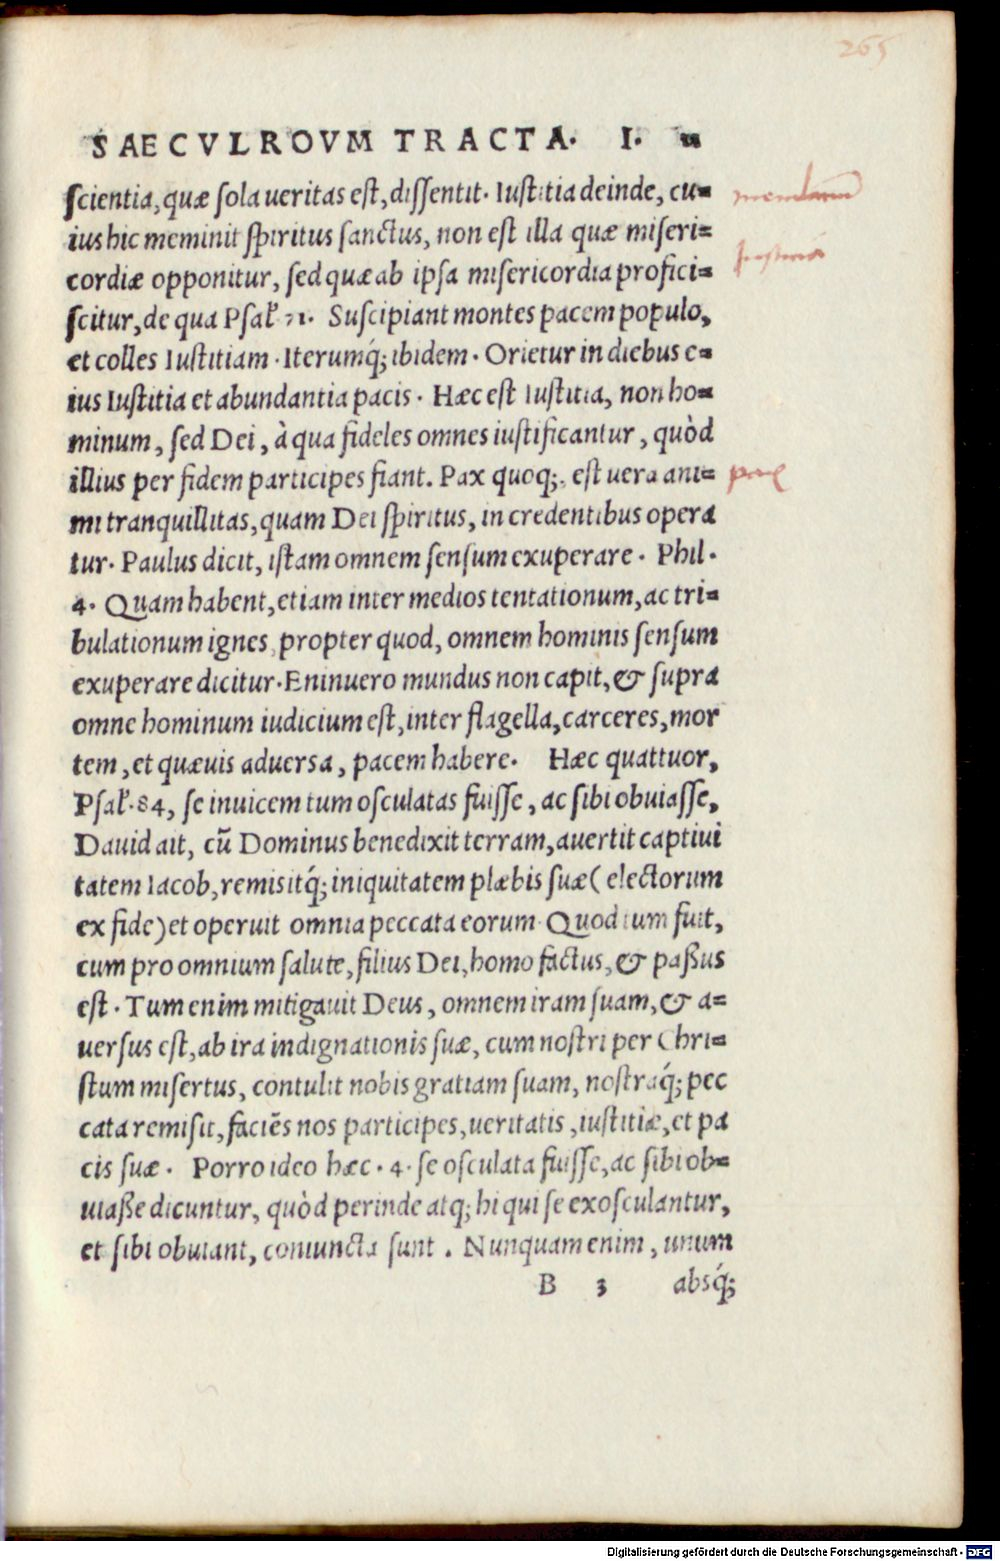 265
SAECVLROVM TRACTA. I. 11
scientia, quæ sola ueritas est, dissentit. Iustitia deinde, cu=
ius hic meminit spiritus sanctus, non est illa quæ miseri=
cordiæ opponitur, sed quæ ab ipsa misericordia profici=
scitur, de qua Psal. 71. Suscipiant montes pacem populo,
et colles Iustitiam. Iterumq́; ibidem. Orietur in diebus e=
ius Iustitia et abundantia pacis. Hæc est Iustitia, non ho=
minum, sed Dei, à qua fideles omnes iustificantur, quòd
illius per fidem participes fiant. Pax quoq;, est uera ani=
mi tranquillitas, quam Dei spiritus, in credentibus opera
tur. Paulus dicit, istam omnem sensum exuperare. Phil.
4. Quam habent, etiam inter medios tentationum, ac tri=
bulationum ignes, propter quod, omnem hominis sensum
exuperare dicitur. Eninuero mundus non capit, & supra
omne hominum iudicium est, inter flagella, carceres, mor
tem, et quæuis aduersa, pacem habere. Hæc quattuor,
Psal. 84, se inuicem tum osculatas fuisse, ac sibi obuiasse,
Dauid ait, cū Dominus benedixit terram, auertit captiui
tatem Iacob, remisitq́; iniquitatem plæbis suæ (electorum
ex fide) et operuit omnia peccata eorum. Quod tum fuit,
cum pro omnium salute, filius Dei, homo factus, & paßus
est. Tum enim mitigauit Deus, omnem iram suam, & a=
uersus est, ab ira indignationis suæ, cum nostri per Chri=
stum misertus, contulit nobis gratiam suam, nostraq́; pec
cata remisit, faciēs nos participes, ueritatis, iustitiæ, et pa
cis suæ. Porro ideo hæc. 4. se osculata fuisse, ac sibi ob=
uiaße dicuntur, quòd perinde atq; hi qui se exosculantur,
et sibi obuiant, coniuncta sunt. Nunquam enim, unum
B 3 absq́;
pax
Digitalisierung gefördert durch die Deutsche Forschungsgemeinschaft - DFG